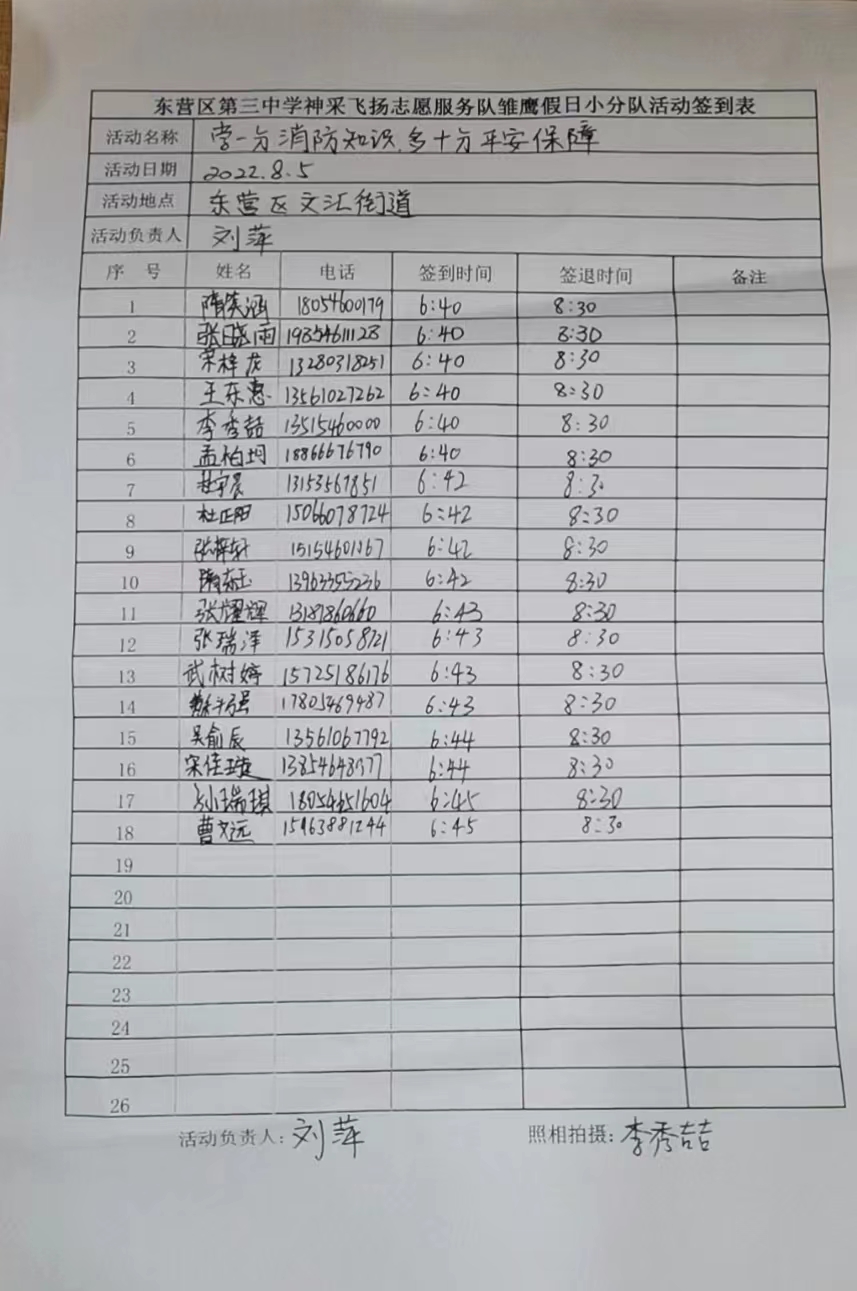 东营区第三中学神采飞扬志愿服务队雏鹰假日小分队活动签到表
活动名称 学一分消防知识,多十分平安保障
活动日期 2022.8.5
活动地点 东营区文汇街道
活动负责人 刘萍
序 号 姓名 电话 签到时间 签退时间 备注
1 隋笑涵 18054600179 6:40 8:30
2 张晓雨 19854611128 6:40 8:30
3 荣梓龙 13280318251 6:40 8:30
4 王东惠 13561027262 6:40 8:30
5 李秀喆 13515460000 6:40 8:30
6 孟柏坷 18866676790 6:40 8:30
7 13153567851 6:42 8:30
8 杜正阳 15066078724 6:42 8:30
9 张梓轩 15154601167 6:42 8:30
10 13963355236 6:42 8:30
11 张耀辉 13181860660 6:43 8:30
12 张瑞泽 15315058721 6:43 8:30
13 武树婷 15725186176 6:43 8:30
14 17805469487 6:43 8:30
15 吴俞辰 13561067792 6:44 8:30
16 宋佳璇 13854648977 6:44 8:30
17 孙瑞琪 18054651604 6:45 8:30
18 曹文远 15963881244 6:45 8:30
19
20
21
22
23
24
25
26
活动负责人: 刘萍 照相拍摄: 李秀喆